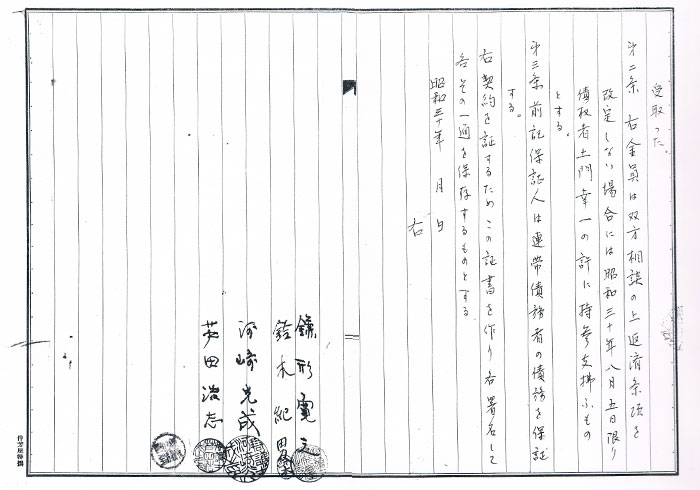 受取った。
第二条 右金員は双方相談の上返済条項を
改定しない場合には昭和三十年八月五日限り
債权者土門幸一の許に持参支拂ふもの
とする。
第三条 前記保証人は連帯債務者の債務を保証
する。
右契約を証するためこの証書を作り各署名して
各その一通を保存するものとする
昭和三十年 月 日
右
鎌形寛之
鈴木紀男
河崎光成
英田浩志